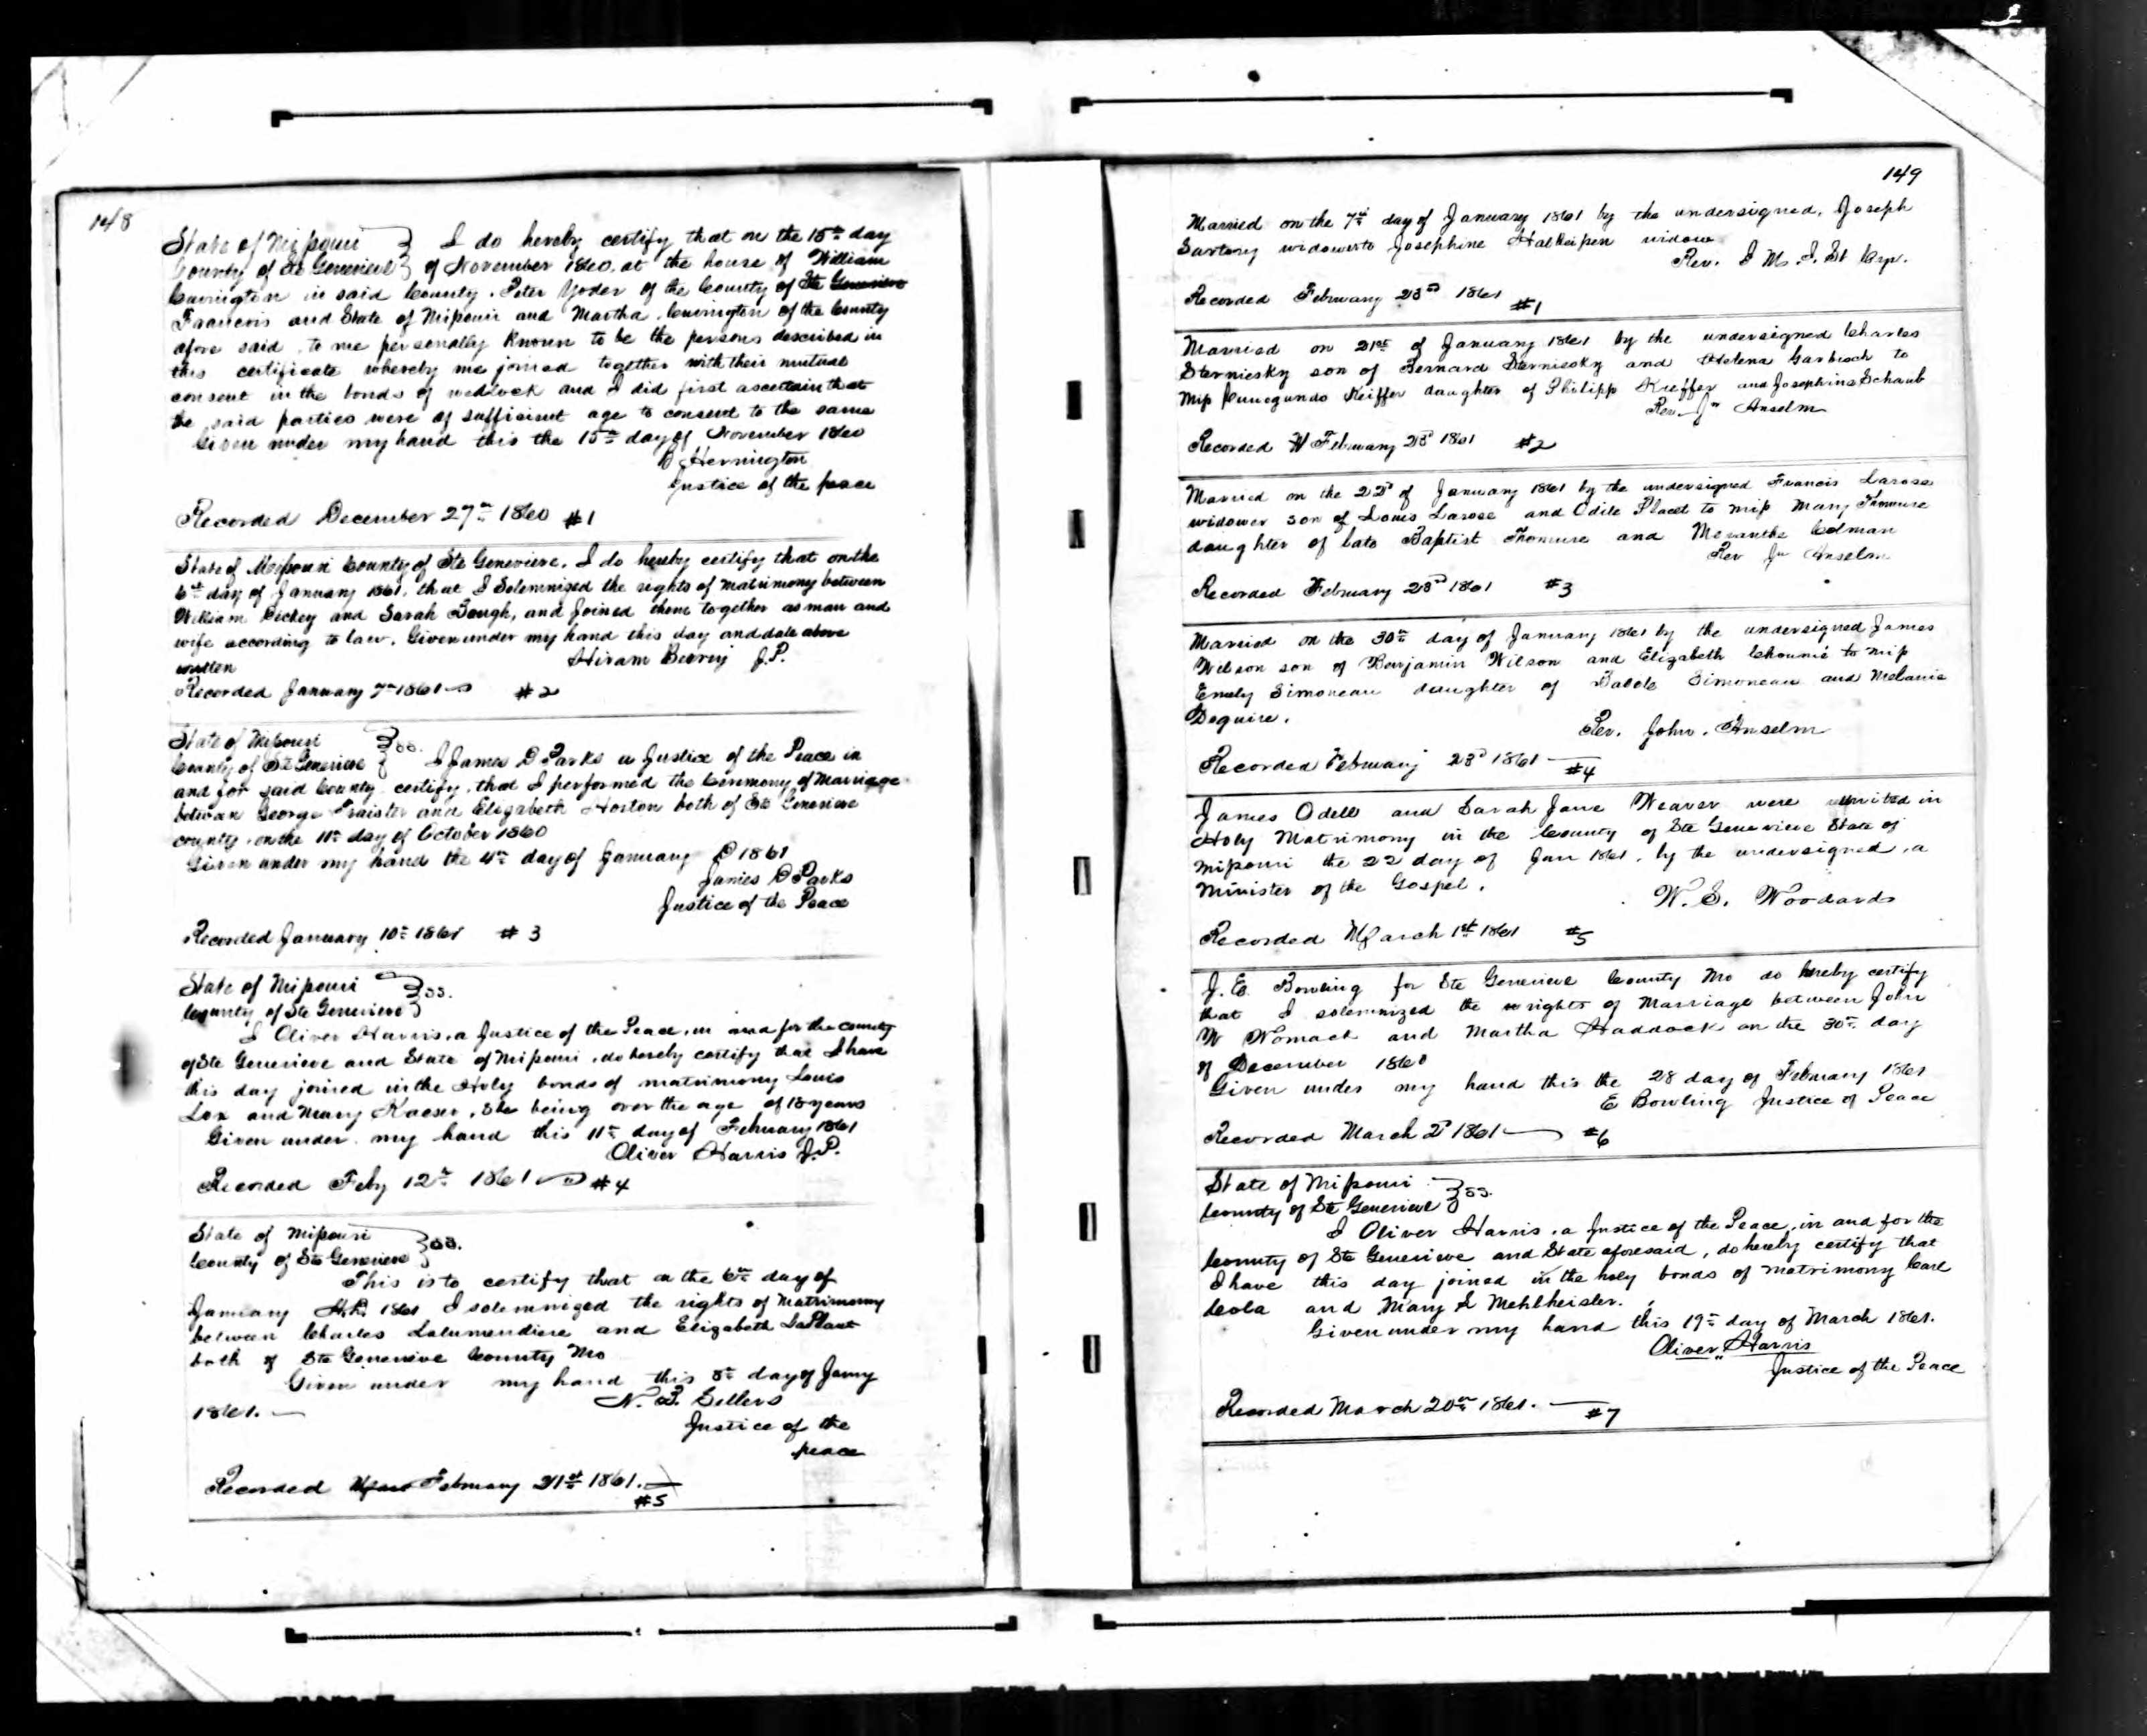 148
State of Missouri } I do hereby certify that on the 15th day
County of Ste Genevieve } of November 1860, at the house of William
Covington in said County, Peter Yoder of the County of Ste Genevieve
Francois and State of Missouri and Martha Covington of the County
afore said, to me personally known to be the persons described in
this certificate whereby me joined together with their mutual
consent in the bonds of wedlock and I did first ascertain that
the said parties were of sufficient age to consent to the same
Given under my hand this the 15th day of November 1860
B Herrington
Justice of the peace
Recorded December 27th 1860 #1
State of Missouri County of Ste Genevieve. I do hereby certify that on the
6th day of January 1861, that I Solemnized the rights of matrimony between
William Dickey and Sarah Bough, and Joined them together as man and
wife according to law. Given under my hand this day and date above
written Hiram J.P.
Recorded January 7th 1861 #2
State of Missouri } ss.
County of Ste Genevieve } I James D Parks a Justice of the Peace in
and for said County certify, that I performed the Ceremony of Marriage
between George Traister and Elizabeth Horton both of Ste Genevieve
county, on the 11th day of October 1860
Given under my hand the 4th day of January D 1861
James D Parks
Justice of the Peace
Recorded January 10th 1861 #3
State of Missouri } ss.
County of Ste Genevieve }
I Oliver Harris, a Justice of the Peace, in and for the county
of Ste Genevieve and State of Missouri, do hereby certify that I have
this day joined in the Holy bonds of matrimony Louis
Lox and Mary Kaeser, She being over the age of 18 years
Given under my hand this 11th day of February 1861
Oliver Harris J.P.
Recorded Feby 12th 1861 #4
State of Missouri } ss.
County of Ste Genevieve }
This is to certify that on the 6th day of
January A.D. 1861 I solemnized the rights of Matrimony
between Charles Lalumendiere and Elizabeth LaPlant
both of Ste Genevieve County Mo
Given under my hand this 8th day of Jany
1861. N. B. Sellers
Justice of the
peace
Recorded February 21st 1861.
#5
149
Married on the 7th day of January 1861 by the undersigned, Joseph
Sartory widower to Josephine widow
Rev.
Recorded February 23rd 1861 #1
Married on 21st of January 1861 by the undersigned Charles
Sterniesky son of Bernard Sterniesky and Helena Garbisch to
Miss Cunegunda Keiffer daughter of Philipp Kieffer and Josephine Schaub
Rev. Jn Anselm
Recorded February 23d 1861 #2
Married on the 22d of January 1861 by the undersigned Francis Larose
widower son of Louis Larose and Odile Placet to miss Mary Thomure
daughter of late Baptist Thomure and Meranthe Colman
Rev Jn Anselm
Recorded February 23rd 1861 #3
Married on the 30th day of January 1861 by the undersigned James
Wilson son of Benjamin Wilson and Elizabeth Choumé to miss
Emely Simoneau daughter of Simoneau and Melanie
Deguire.
Rev. John. Anselm
Recorded February 23d 1861
#4
James Odell and Sarah Jane Weaver were united in
Holy Matrimony in the County of Ste Genevieve State of
Missouri the 22 day of Jan 1861, by the undersigned, a
Minister of the Gospel.
W. S. Woodards
Recorded March 1st 1861 #5
J. E. Bowling for Ste Genevieve County Mo do hereby certify
that I solemnized the rights of Marriage between John
W Womack and Martha Haddock on the 30th day
of December 1860
Given under my hand this the 28 day of February 1861
E Bowling Justice of Peace
Recorded March 2d 1861 #6
State of Missouri } ss.
County of Ste Genevieve }
I Oliver Harris, a Justice of the Peace, in and for the
County of Ste Genevieve and State aforesaid, do hereby certify that
I have this day joined in the holy bonds of matrimony Carl
Leola and Mary S Mehlheisler.
Given under my hand this 19th day of March 1861.
Oliver Harris
Justice of the Peace
Recorded March 20th 1861.
#7